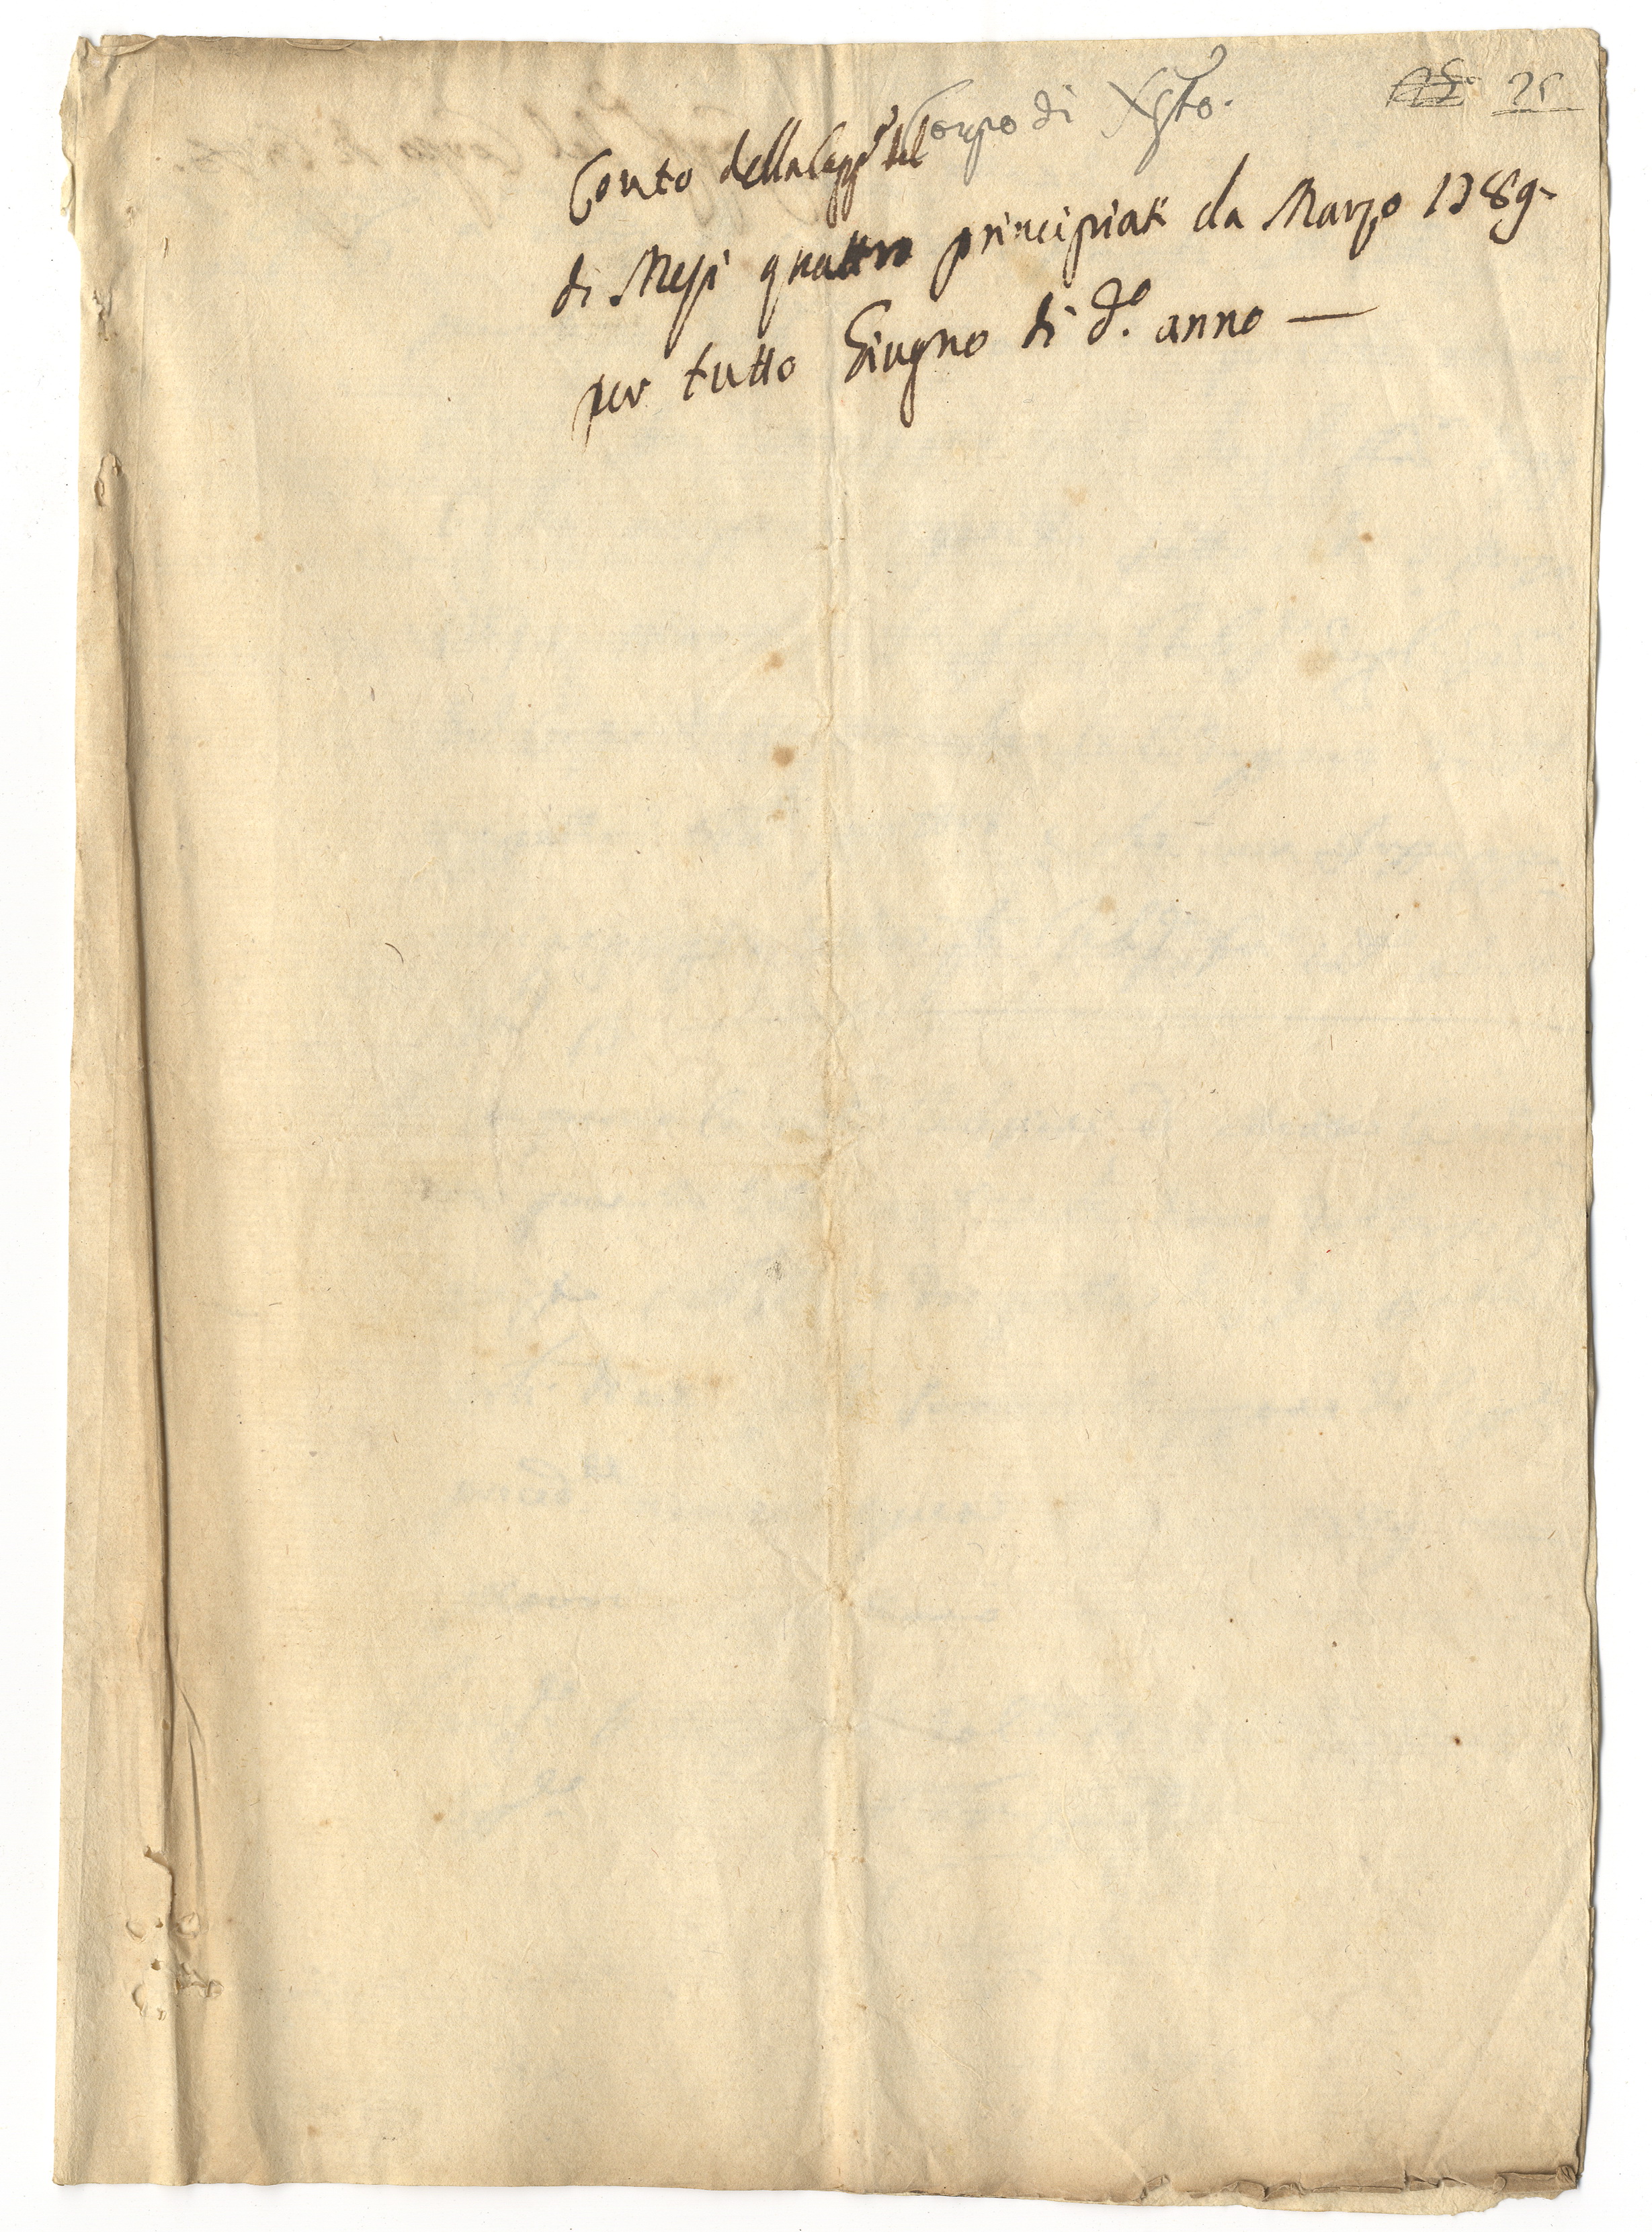 25
Conto della Capp.ª del Corpo di Xsto.
di Mesi quattro principiati da Marzo 1789.
per tutto Giugno di d.º anno —